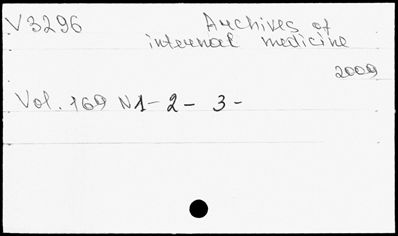 V3296 Archives of
internal medicine
2009
Vol. 169 N1- 2- 3-